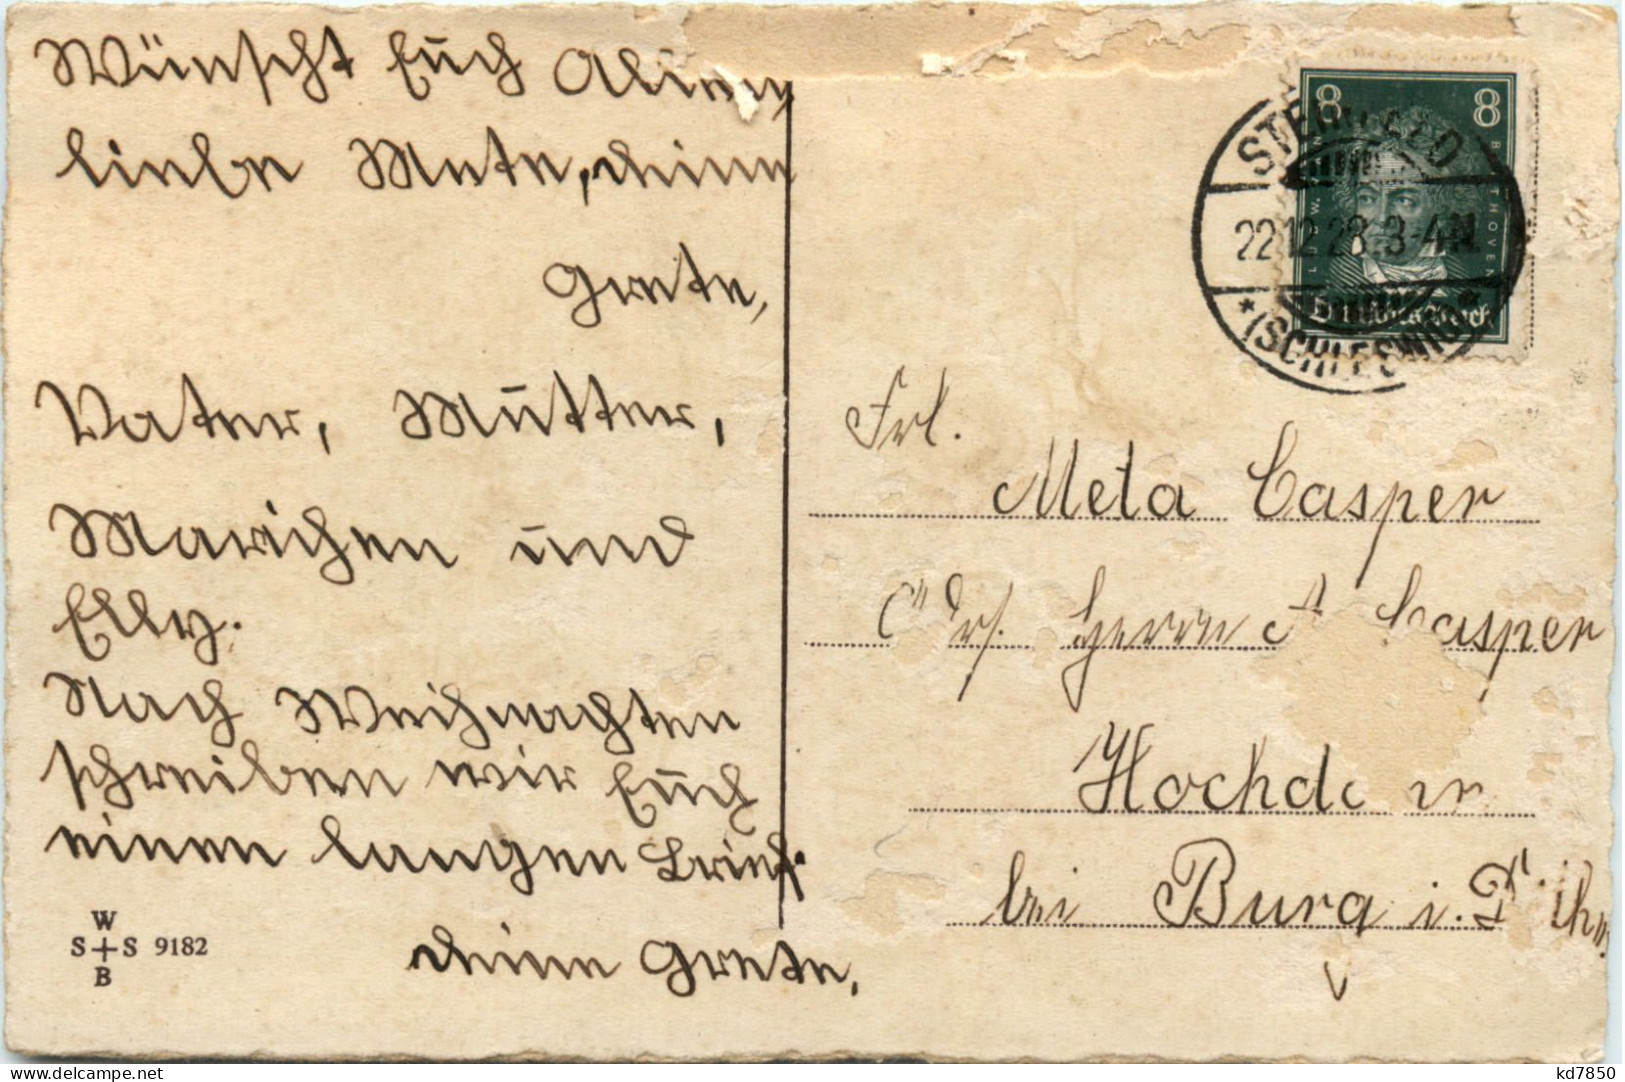 Wünscht Euch Allen,
liebe Meta, deine
Grete,
Vater, Mutter,
Mariechen und
Elly.
Nach Weihnachten
schreiben wir Euch
einen langen Brief.
deine Grete.
W
S+S 9182
B
8 8
L. v. BEETHOVEN
Deutsches Reich
STERNFELD
22.12.28.3-4N.
*(SCHLESWIG)*
Frl.
Meta Casper
Herrn Casper
Hochdonn
bei Burg i. Dithm.
kd7850